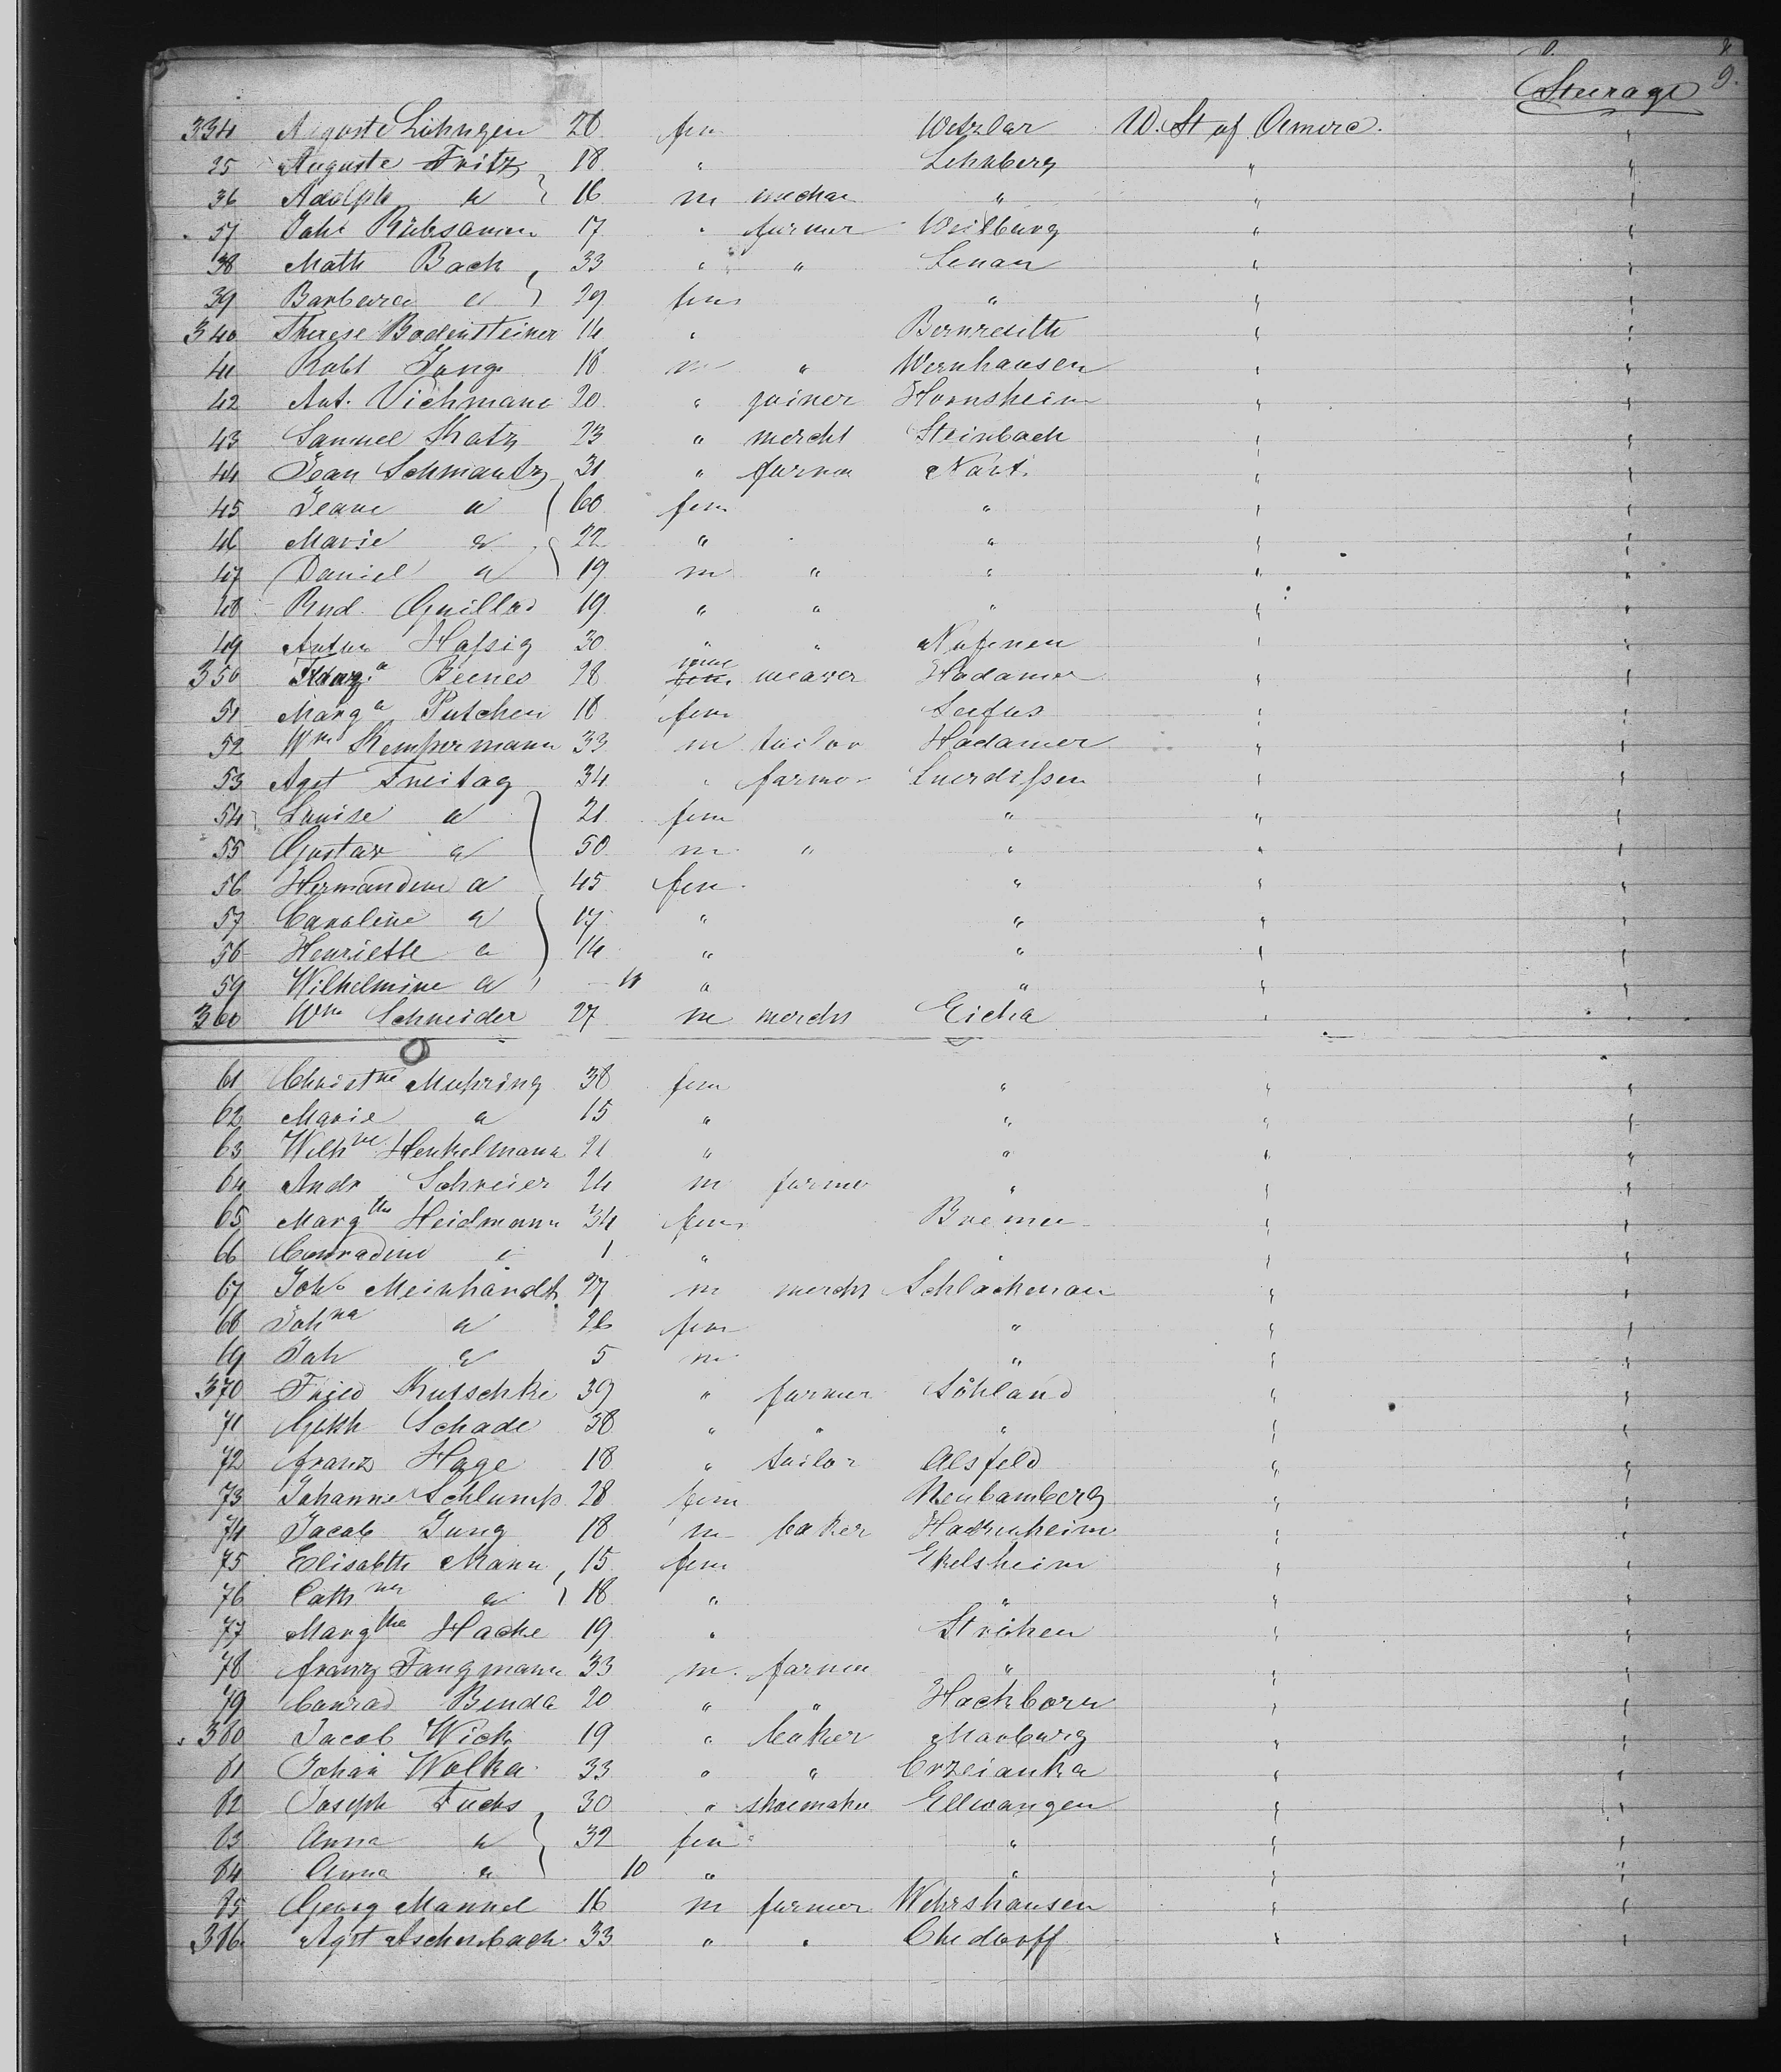 9.
Steerage
334 Auguste Löhngen 26 fem Wetzlar U. St of Americ.
35 Auguste Fritz 18 " Lehnberg " "
36 Adolph " 16 m mechan " " "
37 Joh. Rübsamen 17 " farmer Weilburg " "
38 Math Bach 33 " " Lenau " "
39 Barbara " 29 fem " " "
340 Therese Bodensteiner 14 " Bernreuth " "
41 Robt Jung 18 m " Wernhausen " "
42 Ant. Vichmann 20 " joiner Hornsheim " "
43 Samuel Katz 23 " mercht Steinbach " "
44 Jean Schmantz 31 " farmer Nart. " "
45 Jeane " 60 fem " " "
46 Marie " 22 " " " "
47 Daniel " 19 m " " " "
48 Rud. Guillod 19 " " " " "
49 Anton Hassig 30 " " Nufenen " "
350 Beines 28 weaver Hadamar " "
51 Marg a Putchen 18 fem " "
52 Wm Kempermann 33 m tailor Hadamer " "
53 Agst Freitag 34 " farmer Luerdissen " "
54 Louise " 21 fem " " "
55 Gustav " 50 m " " " "
56 Hermandine " 45 fem " " "
57 Caroline " 17 " " " "
58 Henriette " 14 " " " "
59 Wilhelmine " 11 " " " "
360 Wm Schneider 27 m mercht Eicha " "
61 Christne Muhring 38 fem " " "
62 Marie " 15 " " " "
63 Wilhne Henkelmann 21 " " " "
64 Andr Schreier 24 m farmer " " "
65 Margthe Heidmann 34 fem Bremen " "
66 Conradine " 1 " " "
67 Joh. Meinhardt 27 m mercht Schlackenau " "
68 Johna " 26 fem " " "
69 Joh " 5 m " " "
370 Fried Kutschke 39 " farmer Söhland " "
71 Schade 38 " " " " "
72 Franz Hage 18 " tailor Alsfeld " "
73 Johanne Schlumps 28 fem Neubamberg " "
74 Jacob Jung 18 m baker Hackenheim " "
75 Elisabth Mann 15 fem Ekelsheim " "
76 Cathne " 18 " " " "
77 Margthe Hacke 19 " Ströhen " "
78 Franz Fangmann 33 m farmer " " "
79 Conrad Benda 20 " " Hachborn " "
380 Jacob Wick 19 " baker Marburg " "
81 Johan Wolka 33 " " Crzeianka " "
82 Joseph Fuchs 30 " shoemaker Ellwangen " "
83 Anna " 32 fem " " "
84 Anna " 10 " " " "
85 Georg Mannel 16 m farmer Wehrshausen " "
386 Agst Aschenbach 33 " " Chedorff " "